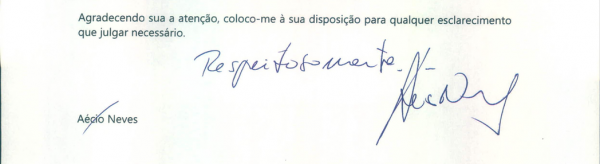 Agradecendo sua a atenção, coloco-me à sua disposição para qualquer esclarecimento
que julgar necessário.
Respeitosamente.
Aécio Neves